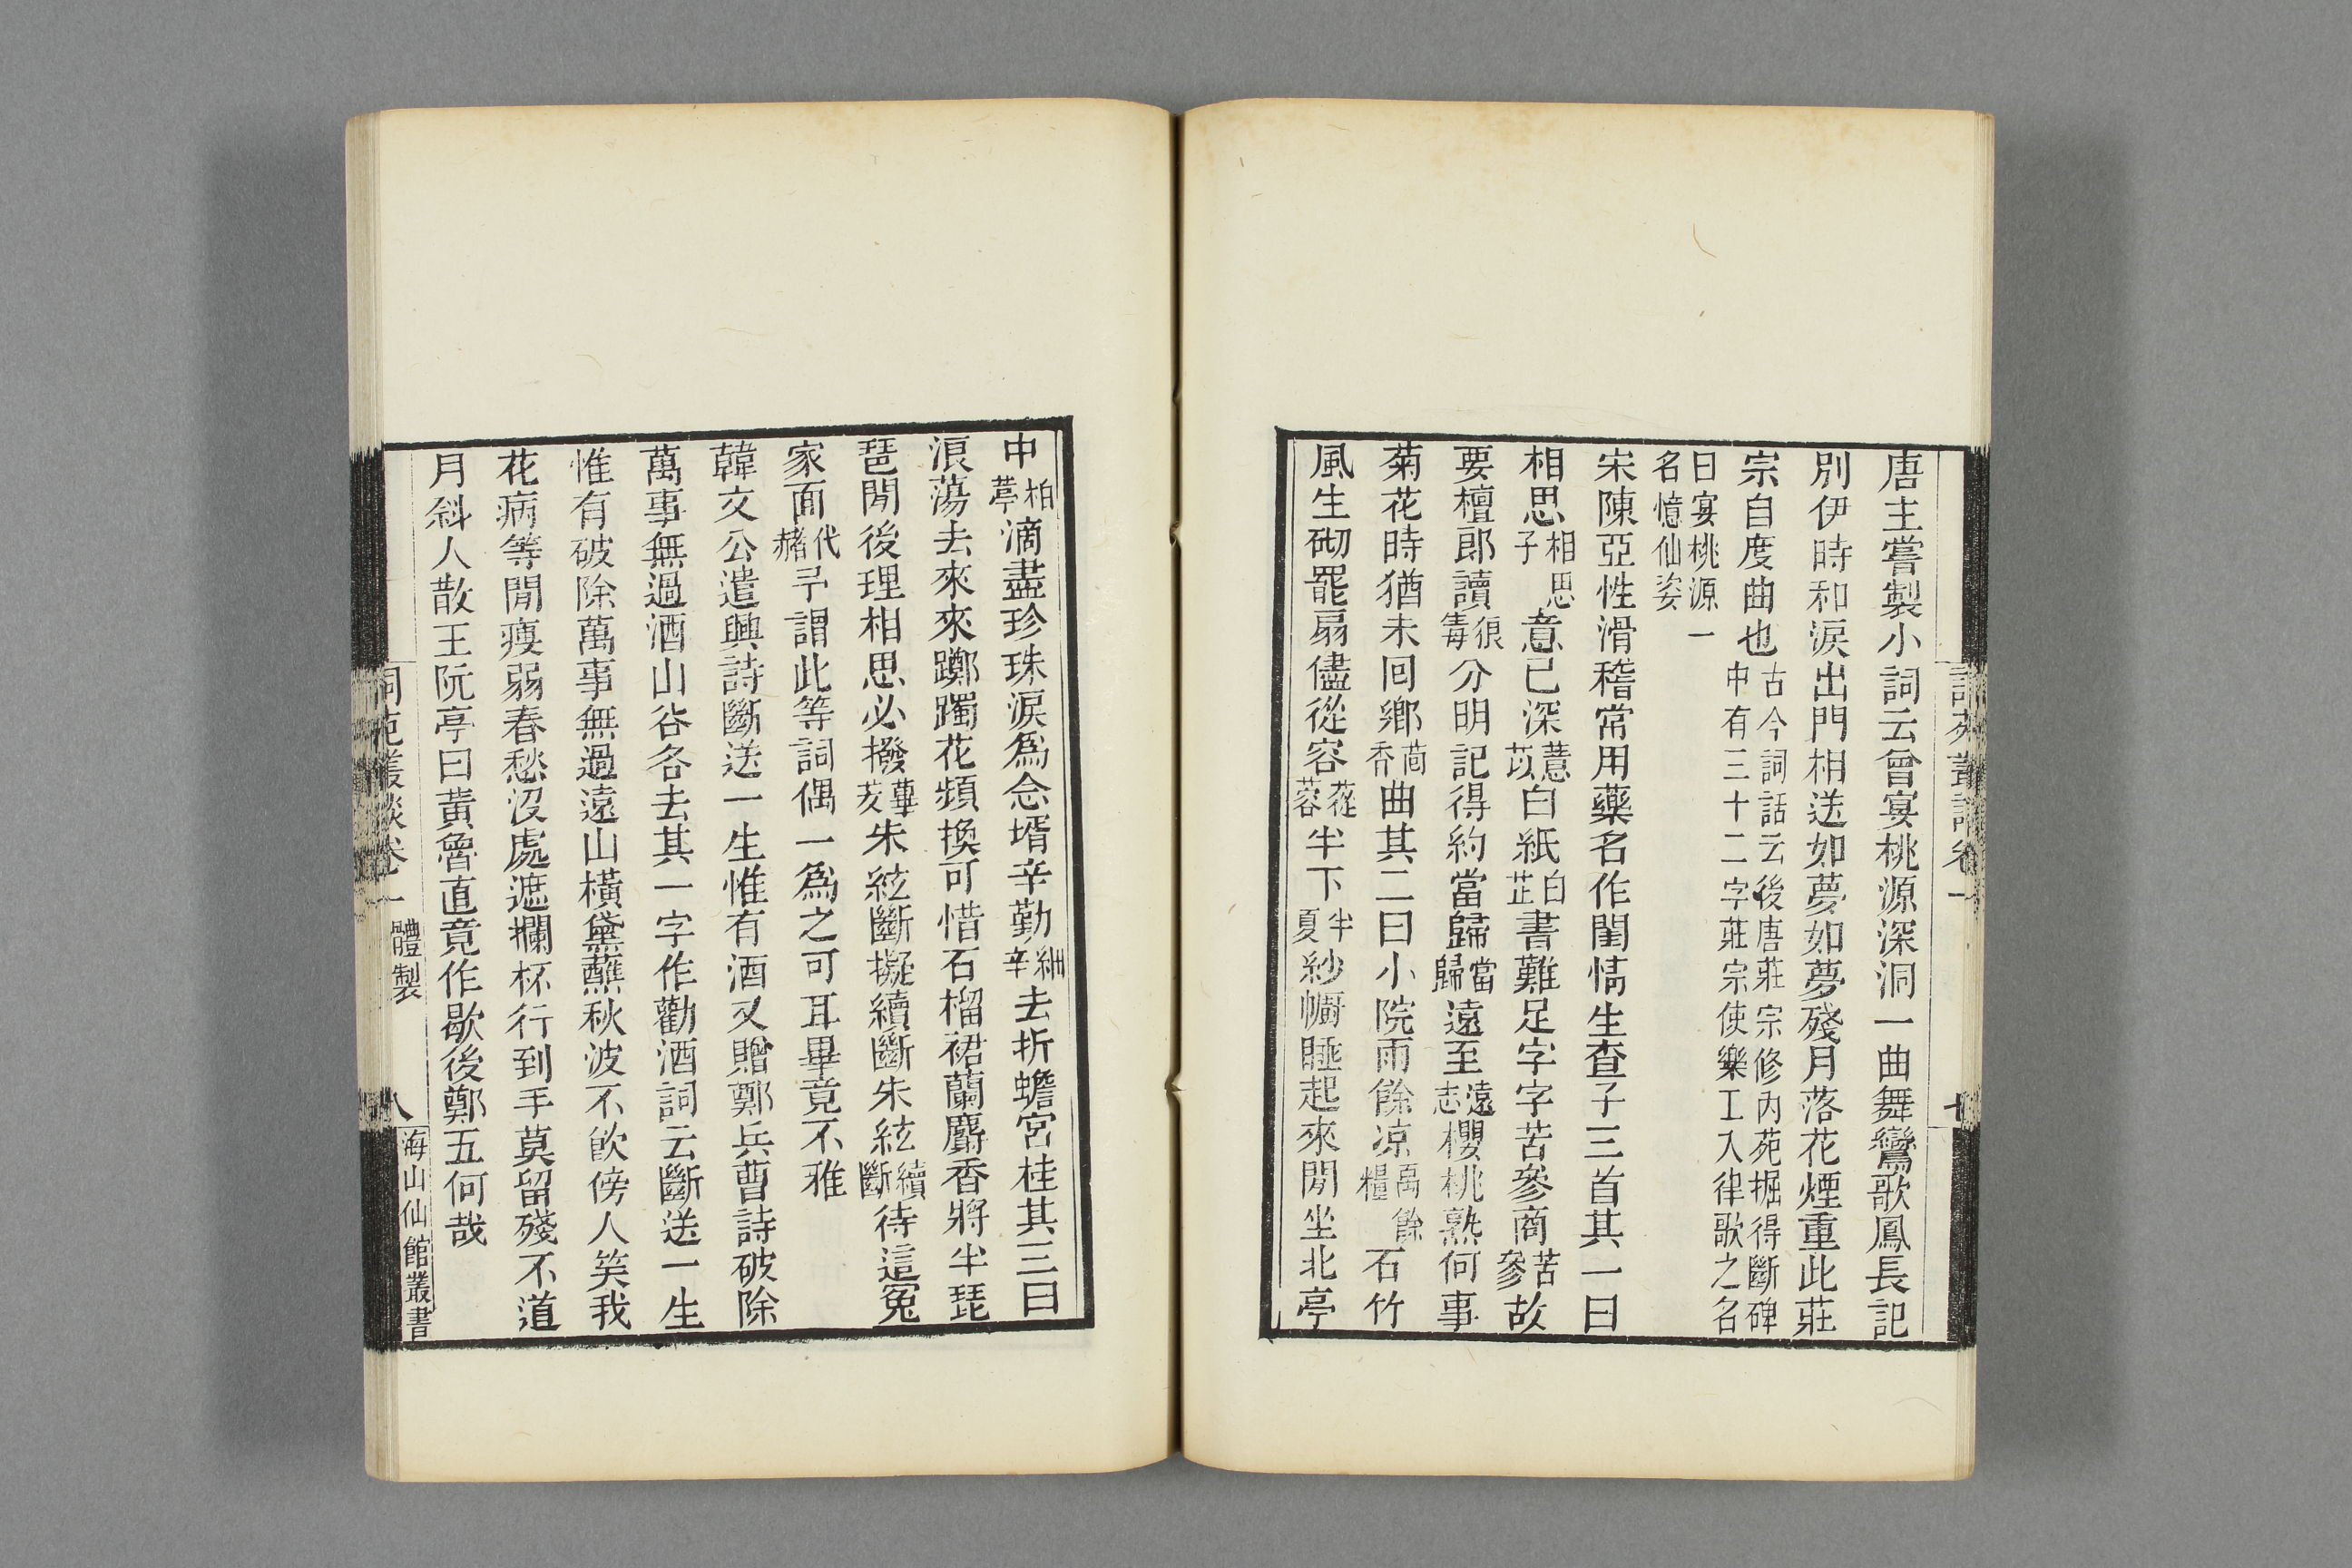 唐主嘗製小詞云曾宴桃源深洞一曲舞鸞歌鳳長記
別伊時和淚出門相送如夢如夢殘月落花煙重此莊
宗自度曲也古今詞話云後唐莊宗修內苑掘得斷碑中有三十二字莊宗使樂工入律歌之名
曰宴桃源一名憶仙姿
宋陳亞性滑稽常用藥名作閨情生查子三首其一曰
相思相思子意已深薏苡白紙白芷書難足字字苦參商苦參故
要檀郎讀狼毒分明記得約當歸當歸遠至遠志櫻桃熟何事
菊花時猶未囘鄉茴香曲其二曰小院雨餘凉禹餘糧石竹
風生砌罷扇儘從容蓯蓉半下半夏紗幮睡起來閒坐北亭
詞苑叢談卷一
七
中柏葶滴盡珍珠淚爲念壻辛勤細辛去折蟾宮桂其三曰
浪蕩去來來躑躅花頻換可惜石榴裙蘭麝香將半琵
琶閒後理相思必撥蓽茇朱絃斷擬續斷朱絃續斷待這冤
家面代赭予謂此等詞偶一爲之可耳畢竟不雅
韓文公遣興詩斷送一生惟有酒又贈鄭兵曹詩破除
萬事無過酒山谷各去其一字作勸酒詞云斷送一生
惟有破除萬事無過遠山橫黛蘸秋波不飮傍人笑我
花病等閒瘦弱春愁沒處遮攔杯行到手莫留殘不道
月斜人散王阮亭曰黃魯直竟作歇後鄭五何哉
詞苑叢談卷一 體製
八
海山仙館叢書